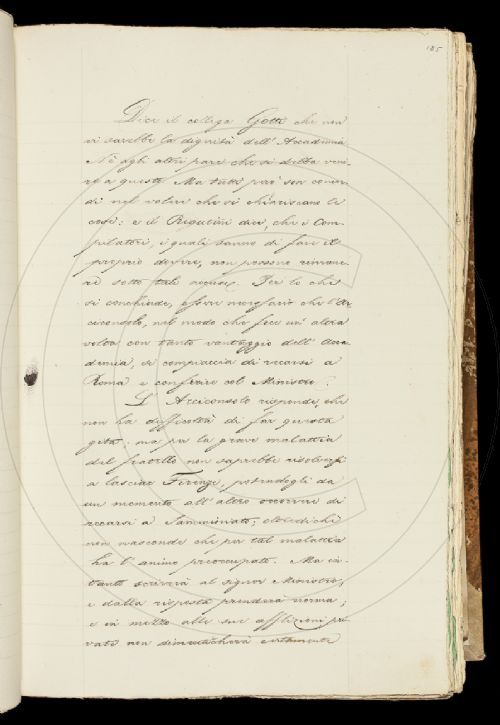 185
Dice il collega Gotti che non
vi sarebbe la dignità dell'Accademia
Nè agli altri pare che si debba veni-
re a questo. Ma tutti però son concor-
di nel volere che si chiariscano le
cose: e il Rigutini dice, che i Com-
pilatori, i quali sanno di fare il
proprio dovere, non possono rimane-
re sotto tali accuse. Per lo che
si conchiude, esser necessario che l'Ar-
ciconsolo, nel modo che fece un'altra
volta con tanto vantaggio dell'Acca-
demia, si compiaccia di recarsi a
Roma e conferire col Ministro.
L'Arciconsolo risponde, che
non ha difficoltà di far questa
gita: ma per la grave malattia
del fratello non saprebbe risolversi
a lasciar Firenze, potendogli da
un momento all'altro occorrere di
recarsi a Samminiato; chè
non nasconde che per tal malattia
ha l'animo preoccupato. Ma in-
tanto scriverà al signor Ministro,
e dalla risposta prenderà norma;
e in mezzo alle sue afflizioni pri-
vate non dimenticherà certamente